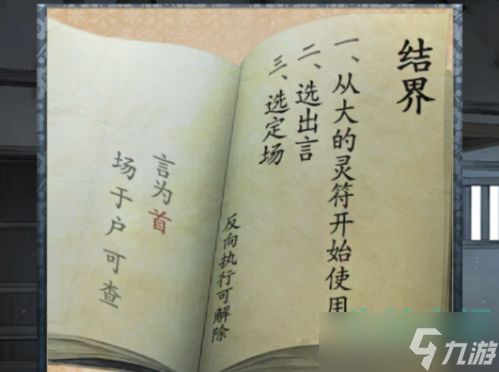 结界
一、从大的灵符开始使用
二、选出言
三、选定场
反向执行可解除
言为首
场于户可查
九游